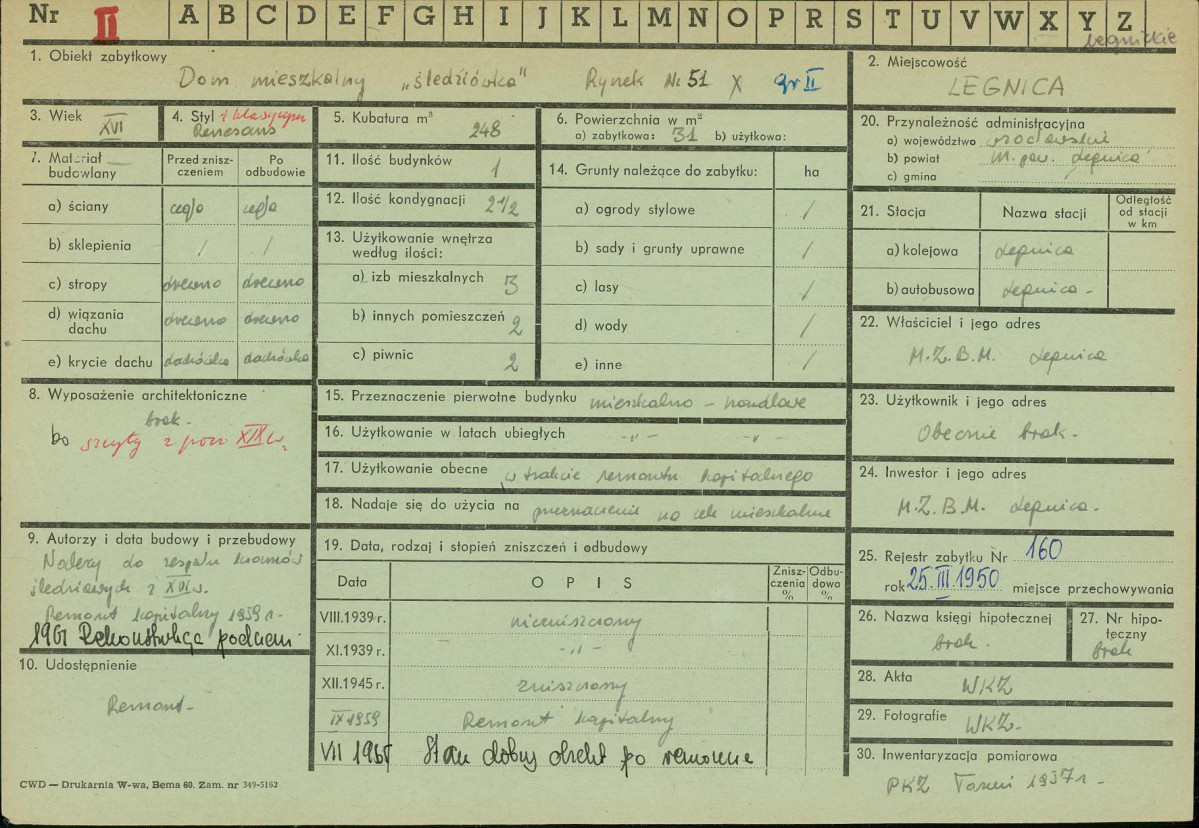 Nr II A B C D E F G H I J K L M N O P R S T U V W X Y Z
legnickie
1. Obiekt zabytkowy
Dom mieszkalny „śledziówka" Rynek Nr 51 X gr II
2. Miejscowość
LEGNICA
3. Wiek
XVI
4. Styl i klasycyzm
Renesans
5. Kubatura m³
248
6. Powierzchnia w m²
a) zabytkowa: 31 b) użytkowa:
20. Przynależność administracyjna
a) województwo wrocławskie
b) powiat m. pow. Legnica
c) gmina /
7. Materiał budowlany
Przed zniszczeniem
Po odbudowie
a) ściany cegła cegła
b) sklepienia / /
c) stropy drewno drewno
d) wiązania dachu drewno drewno
e) krycie dachu dachówka dachówka
11. Ilość budynków 1
12. Ilość kondygnacji 2 1/2
13. Użytkowanie wnętrza według ilości:
a) izb mieszkalnych 3
b) innych pomieszczeń 2
c) piwnic 2
14. Grunty należące do zabytku: ha
a) ogrody stylowe /
b) sady i grunty uprawne /
c) lasy /
d) wody /
e) inne /
21. Stacja
Nazwa stacji
Odległość od stacji w km
a) kolejowa Legnica
b) autobusowa Legnica -
22. Właściciel i jego adres
M.Z.B.M. Legnica
8. Wyposażenie architektoniczne
brak.
bo szczyty z pocz XIX w.
15. Przeznaczenie pierwotne budynku mieszkalno - handlowe
16. Użytkowanie w latach ubiegłych -„- -„-
17. Użytkowanie obecne w trakcie remontu kapitalnego
18. Nadaje się do użycia na przeznaczenie na cele mieszkalne
23. Użytkownik i jego adres
Obecnie brak.
24. Inwestor i jego adres
M.Z.B.M. Legnica.
9. Autorzy i data budowy i przebudowy
Należy do zespołu kramów
śledziowych z XVI w.
Remont kapitalny 1959 r.
1961 Rekonstrukcja podcieni
19. Data, rodzaj i stopień zniszczeń i odbudowy
Data
OPIS
Zniszczenia %
Odbudowa %
VIII.1939 r. niezniszczony
XI.1939 r. -„-
XII.1945 r. zniszczony
IX 1959 Remont kapitalny
VII 1965 Stan dobry obiekt po remoncie
25. Rejestr zabytku Nr 160
rok 25.III.1950 miejsce przechowywania
26. Nazwa księgi hipotecznej
brak.
27. Nr hipoteczny
brak
28. Akta WKZ
29. Fotografie WKZ.
30. Inwentaryzacja pomiarowa
PKZ Toruń 1957 r.
10. Udostępnienie
Remont.
CWD — Drukarnia W-wa, Bema 60. Zam. nr 349-5162